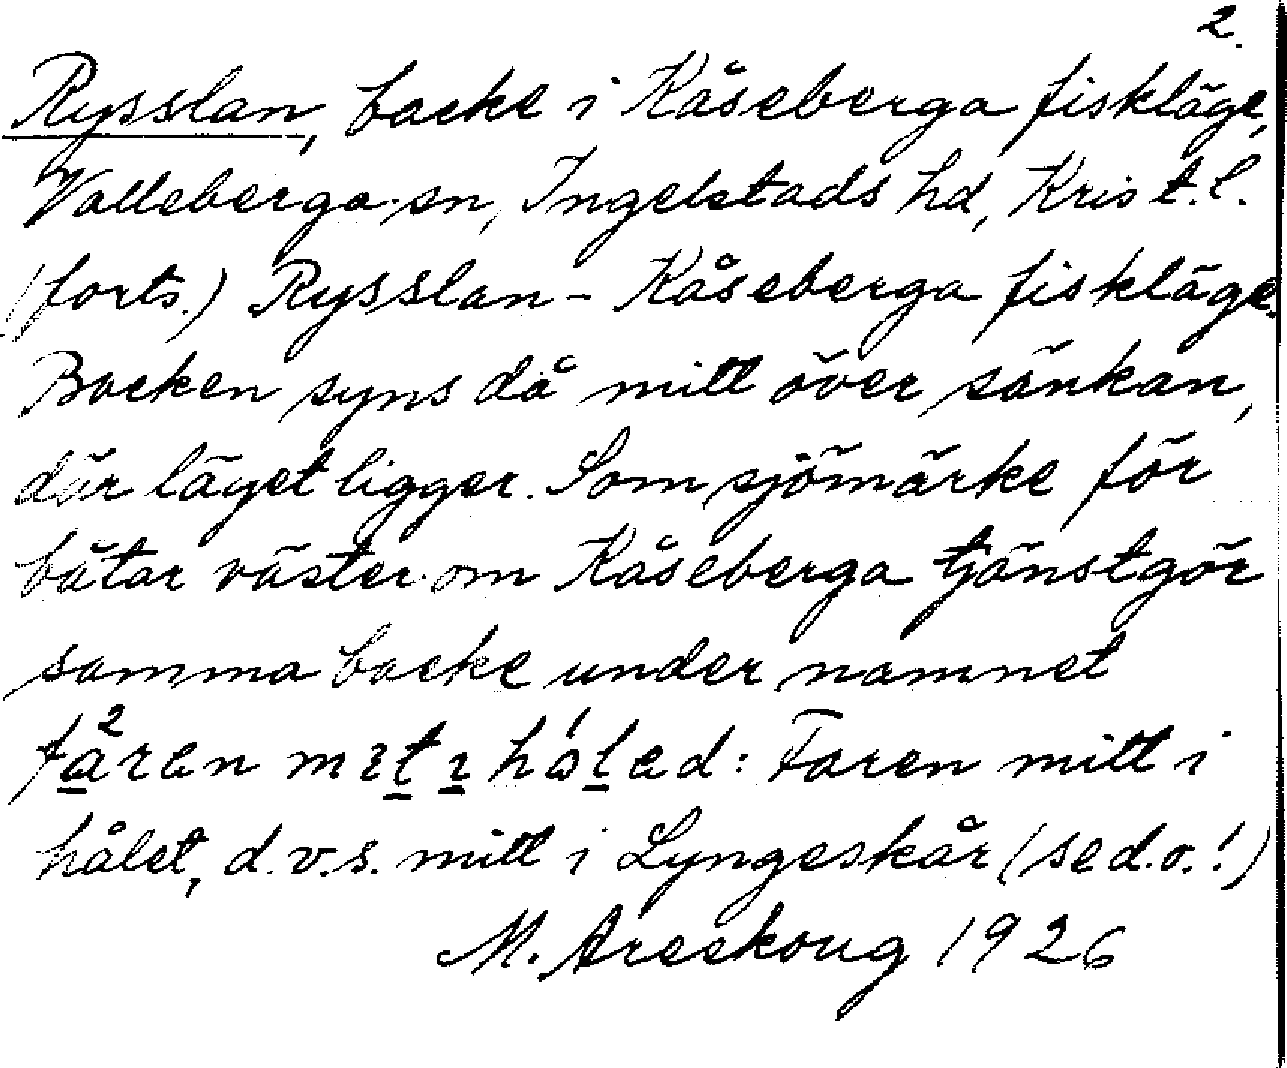 2.
Rysslan, backe i Kåseberga fiskläge,
Valleberga sn, Ingelstads hd, Krist. l.
(forts.) Rysslan - Kåseberga fiskläge.
Backen syns då mitt över sänkan,
där läget ligger. Som sjömärke för
båtar väster om Kåseberga tjänstgör
samma backe under namnet
: Faren mitt i
hålet, d.v.s. mitt i Lyngeskår (se d.o.!)
M. Areskoug 1926